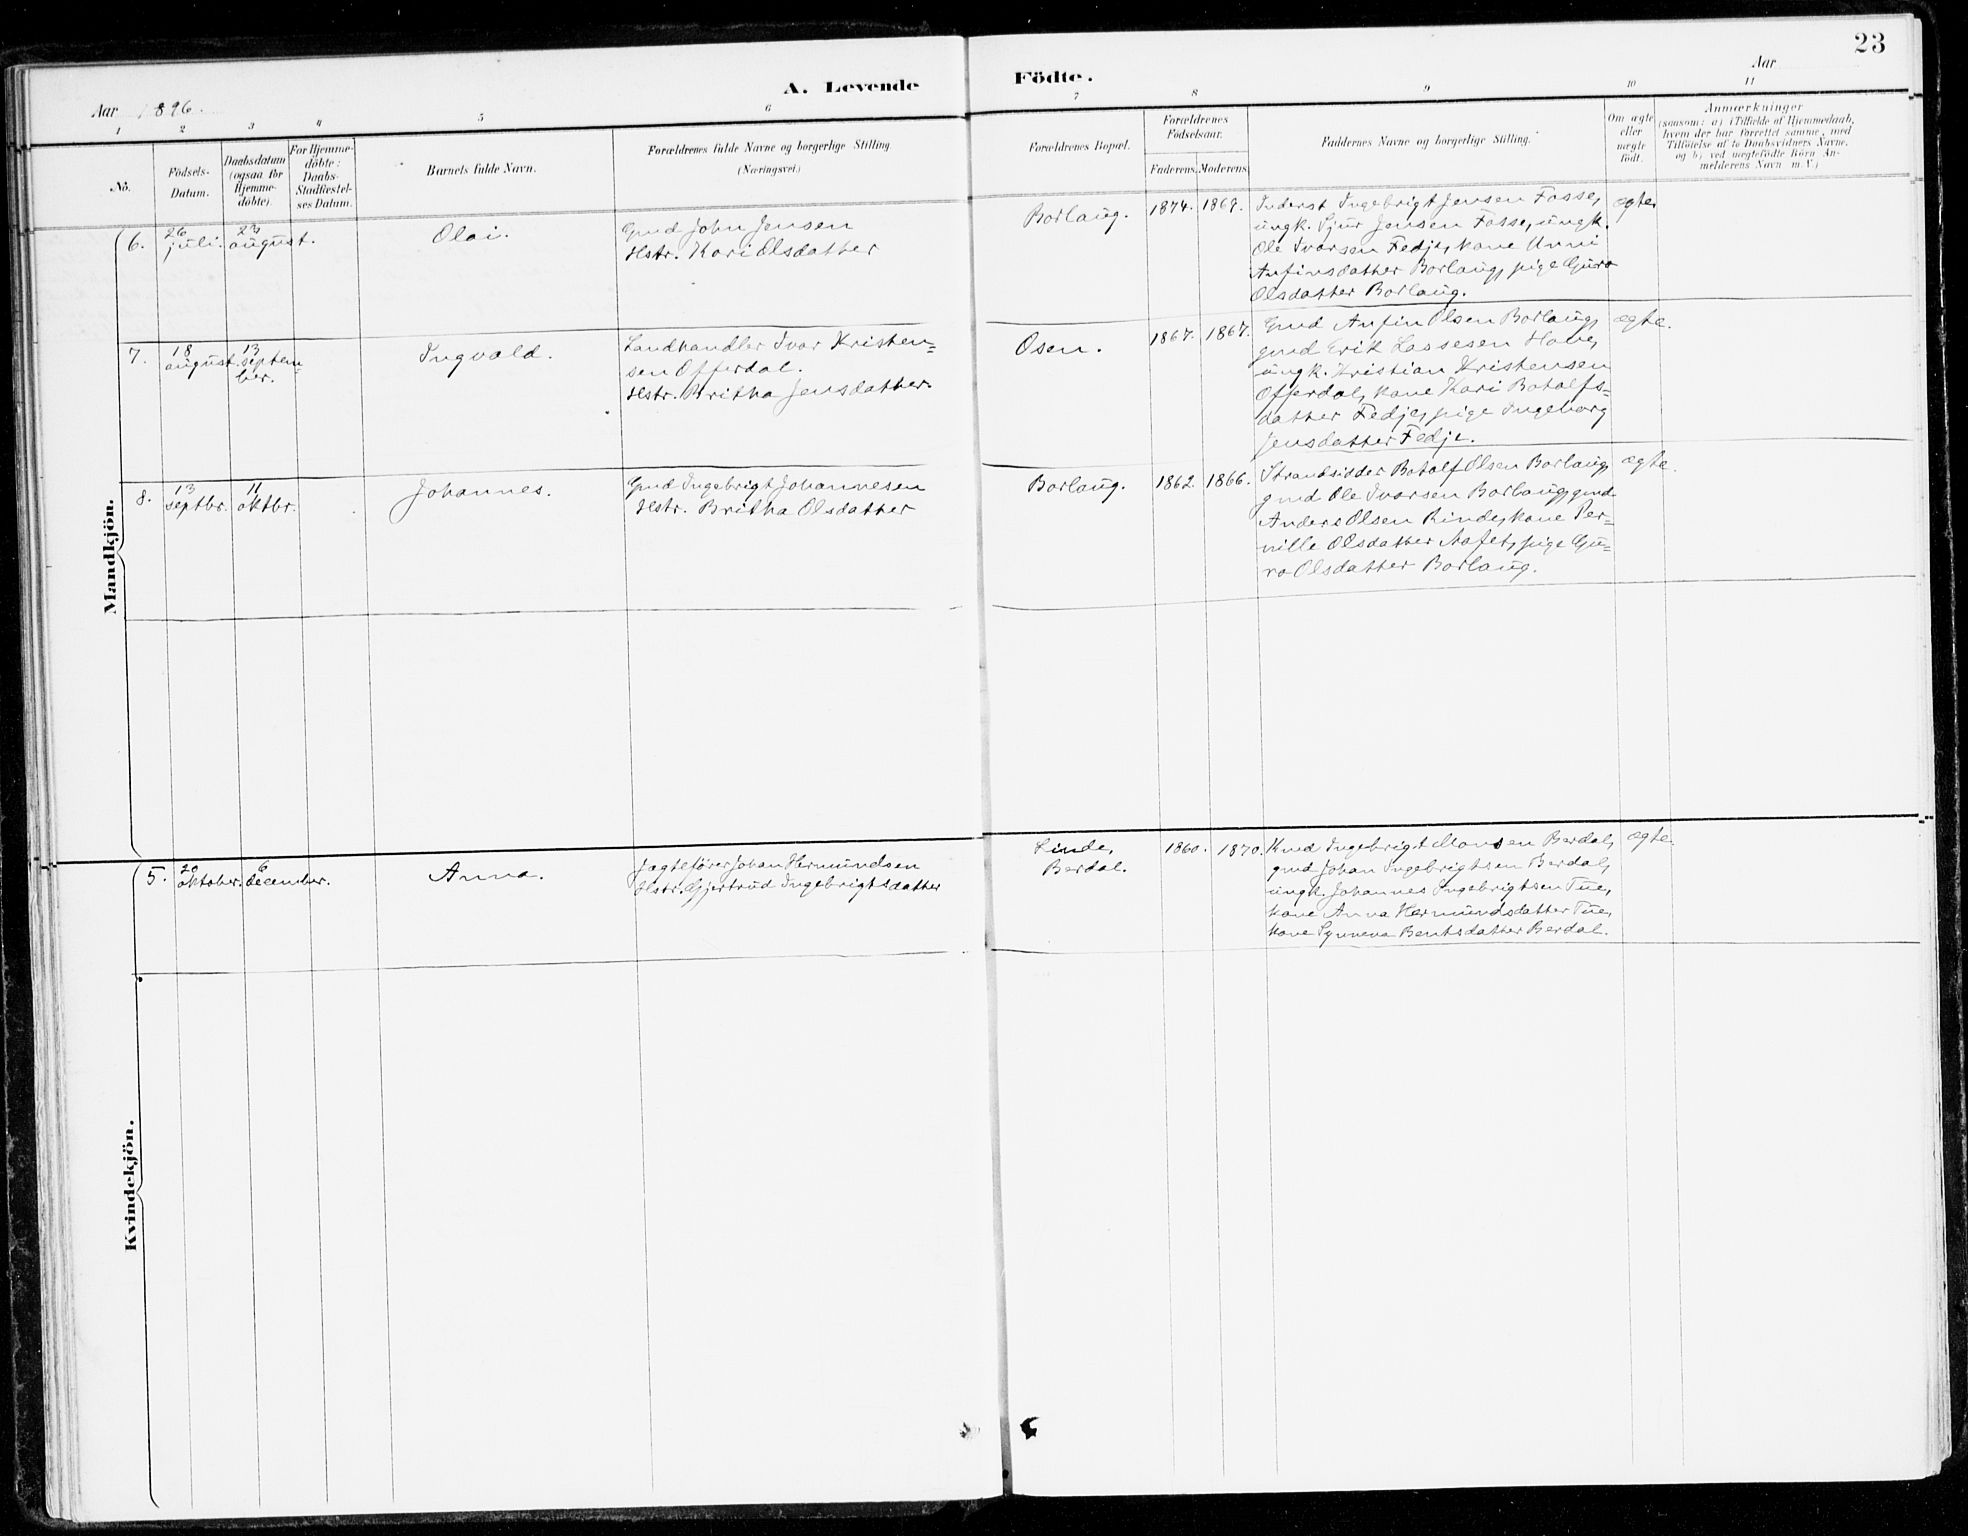 23
A. Levende Födte.
Aar 1896.
Aar
1 2 3 4 5 6 7 8 9 10 11
No.
Födsels-
Datum.
Daabsdatum
(ogsaa for
Hjemme-
döbte).
For Hjemme-
döbte:
Daabs-
Stadfæstel-
ses Datum.
Barnets fulde Navn.
Forældrenes fulde Navne og borgerlige Stilling.
(Næringsvei.)
Forældrenes Bopæl.
Forældrenes
Födselsaar.
Faderens. Moderens.
Faddernes Navne og borgerlige Stilling.
Om ægte
eller
uægte
födt.
Anmærkninger
(saasom: a) i Tilfælde af Hjemmedaab,
hvem der har forrettet samme, med
Tilföielse af to Daabsvidners Navne,
og b) ved uægtefödte Börn An-
melderens Navn m. V.)
Mandkjön.
6.
26
juli.
23
august.
Olai.
Gmd John Jensen
Hstr. Kari Olsdatter
Borlaug.
1874. 1869.
Inderst Ingebrigt Jensen Fosse,
ungk. Sjur Jensen Fosse, ungk.
Ole Ivarsen Fedje, kone Unni
Anfinsdatter Borlaug, pige Guro
Olsdatter Borlaug.
ægte.
7.
18
august.
13
septem-
ber.
Ingvald.
Landhandler Ivar Kristen=
sen Offerdal.
Hstr. Britha Jensdatter.
Osen.
1867. 1867.
Gmd Anfin Olsen Borlaug,
gmd Erik Lassesen Hove,
ungk. Kristian Kristensen
Offerdal, kone Kari Botolfs=
datter Fedje, pige Ingeborg
Jensdatter Fedje.
ægte.
8.
13
septbr.
11
oktbr.
Johannes.
Gmd Ingebrigt Johannesen
Hstr. Britha Olsdatter
Borlaug.
1862. 1866.
Strandsidder Botolf Olsen Borlaug,
gmd Ole Ivarsen Borlaug, gmd
Anders Olsen Rinde, kone Per=
nille Olsdatter pige Gu=
ro Olsdatter Borlaug.
ægte.
Kvindekjön.
5.
20
oktober.
6
december.
Anna.
Jægtefører Johan Hermundsen
Hstr. Gjertrud Ingebrigtsdatter
Linde,
Berdal.
1860. 1870.
Kmd Ingebrigt Monsen Berdal,
gmd Johan Ingebrigtsen Berdal,
ungk. Johannes Ingebrigtsen Tue,
kone Anna Hermundsdatter Tue,
kone Synneva Bentsdatter Berdal.
ægte.